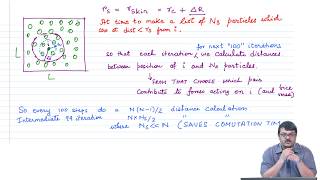 rs = rskin = rc + ΔR
At time to make a list of Ns particles which
are at dist < rs from i.
for next "100" iterations
so that each iteration, we calculate distances
between position of i and Ns particles.
→ FROM THAT CHOOSE which pair
contribute to forces acting on i (and vice
versa)
L
L
So every 100 steps do a N(N-1)/2 distance calculations
Intermediate 99 iteration N×Ns/2
where Ns<<N (SAVES COMUTATION TIM